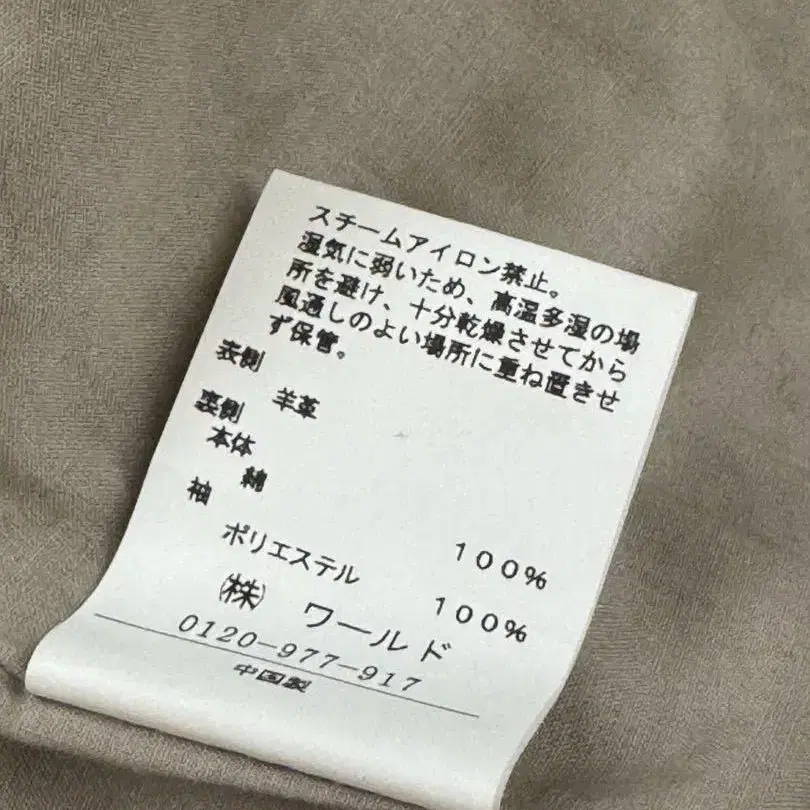 スチームアイロン禁止。
湿気に弱いため、高温多湿の場
所を避け、十分乾燥させてから
風通しのよい場所に重ね置きせ
ず保管。
表側
羊革
裏側
本体
綿 100%
袖
ポリエステル 100%
㈱ ワールド
0120-977-917
中国製